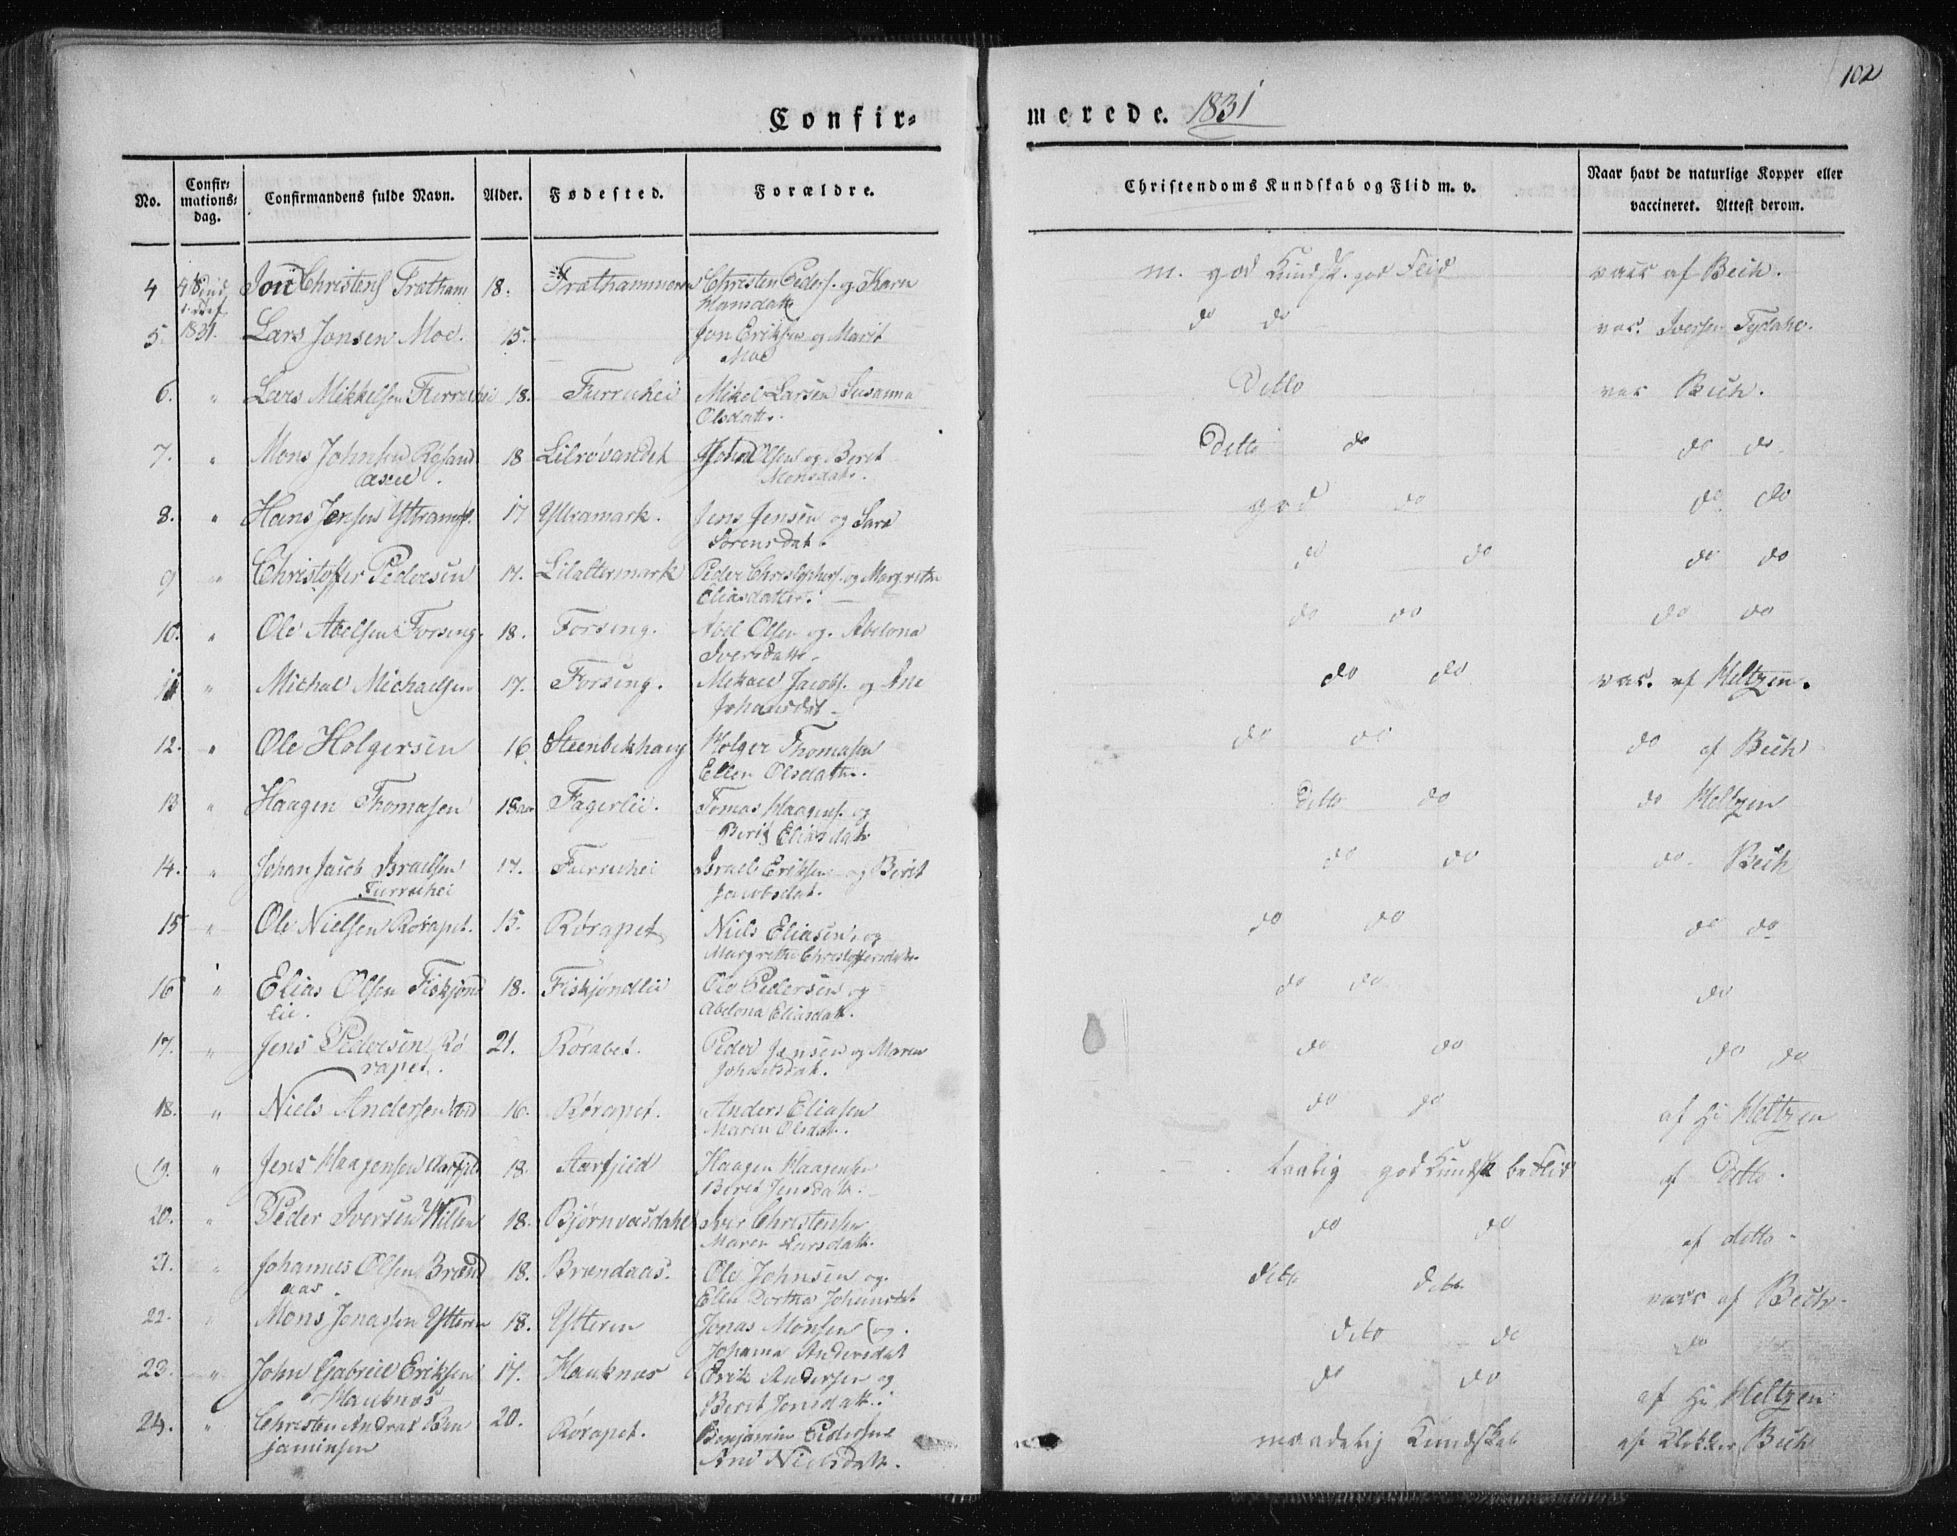 102
Confir-
merede. 1831
No.
Confir-
mations-
dag.
Confirmandens fulde Navn.
Alder.
Fødested.
Forældre.
Christendoms Kundskab og Flid m. v.
Naar havt de naturlige Kopper eller
vaccineret. Attest derom.
4 Jon Christens Trætham 18. Træthammeren Christen Peders. og Karn m. god Kundsk. god Flid vacc af Bech.
Hansdatt
5. 1831. Lars Jonsen Moe. 15. Jon Eriksen og Marit do do vac. Iversen Tydahl.
Moe
6. " Lars Mikkelsen Furruhei 18. Furruhei Mikel Larsen Susanna Ditto vac Bech.
Olsdatt.
7. " Mons Johnsen Røsand 18 Lilrøvandet John Olsen og Berit Ditto do do do.
axel. Monsdat.
8. " Hans Jensen Yttramk. 17 Yttramark. Jens Jensen og Sara god do do do
Sørensdat.
9 " Christoffer Pedersen 17. Lilaltermark Peder Christophers. og Margrethe do do do do
Eliasdatter.
10. " Ole Abelsen Forseng. 18. Forseng. Abel Olsen og Abelona do do do do
Iversdatt.
11 " Michal Michaelsen 17. Forseng. Mikael Jacobs. og Ane do do vac. af Meltzen.
Johansdat
12. " Ole Holgersen 16. Steenbekhaug Holger Thomasen do do do af Bech
Ellen Olsdatter.
13 " Haagen Thomasen 18 aar Fagerlie. Tomas Haagens. og Ditto do do Meltzen
Berit Eliasdatt
14. " Johan Jacob Israelsen 17. Furruhei Israel Eriksen og Berit do do do. Bech
Furruhei Jacobsdat.
15 " Ole Nielsen Rørapet. 15. Rørapet Niels Eliasen og do do do do
Margrethe Christoffersdatt.
16 " Elias Olsen Fiskjønd 18. Fiskjøndlie Ole Pedersen og do do do
lie. Abelona Eliasdatt.
17. " Jens Pedersen Rø 21. Rørabet. Peder Jansen og Maren do do do do
rapet. Johansdat.
18. " Niels Andersen 16. Rørapet. Anders Eliasen do do af Hr Meltzen
Maren Olsdat.
19. " Jens Haagensen Aarfjeld 18. Aarfjeld Haagen Haagensen taalig god Kundsk. af Ditto.
Berit Jensdatt.
20. " Peder Iversen Villen 18. Bjørnvasdahl Iver Christensen do do af ditto
Maren Larsdatt.
21. " Johannes Olsen Brænd 18. Brændaas. Ole Johnsen og ditto ditto vacc af Bech.
aas. Ellen Dorthea Johansdat
22. " Mons Jonassen Ytteren 18. Ytteren Jonas Monsen og ditto do do
Johanna Andersdat
23. " John Gabriel Eriksen 17. Hauknæs Erik Andersen og do do af Hr Meltzen
Hauknæs Berit Jonsdatt.
24. " Christen Andreas Ben 20. Rørapet. Benjamin Pedersen maadelig Kundskab af Klokker Bech
jaminsen Ane Nielsdatt.